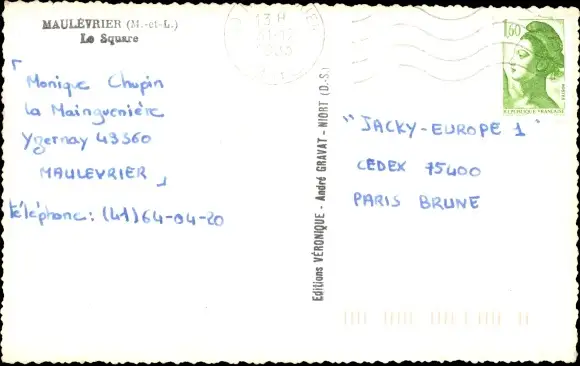 MAULÉVRIER (M.-et-L.)
Le Square
Monique Chupin
La Mainguenière
Yzernay 49360
MAULEVRIER
téléphone : (41) 64-04-20
Editions VÉRONIQUE - André GRAVAT - NIORT (D.-S.)
13 H
1,60
REPUBLIQUE FRANÇAISE
"JACKY-EUROPE 1"
CEDEX 75400
PARIS BRUNE